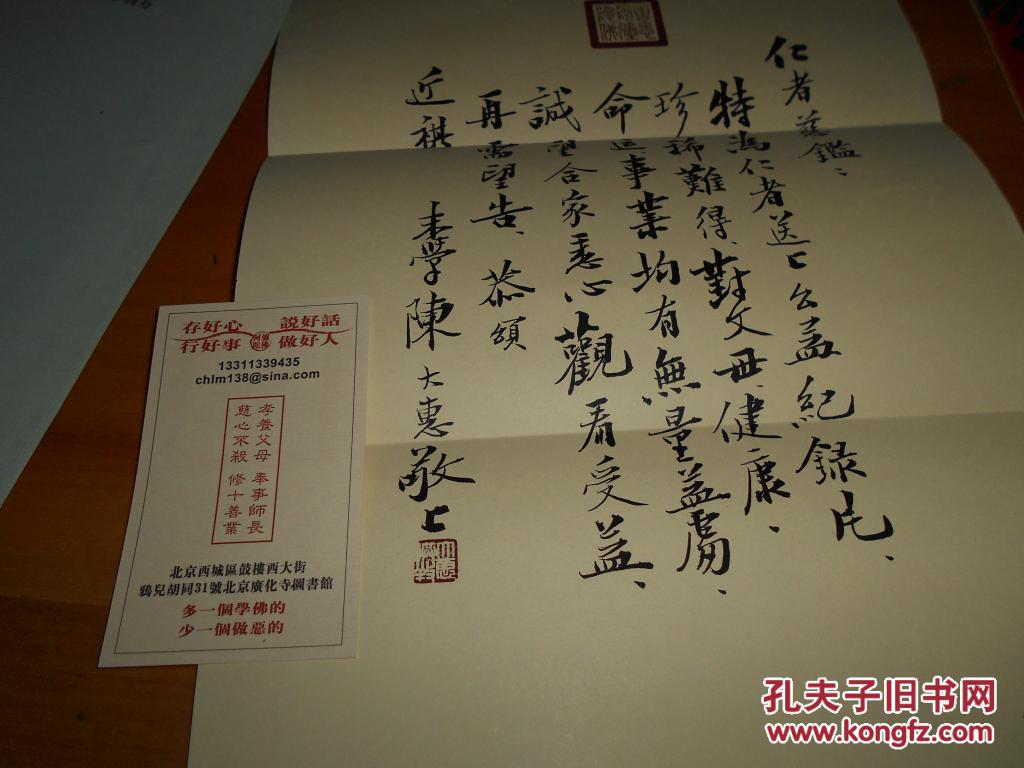 仁者慈鑑：
特為仁者送上公益紀録片、
珍稀難得、對父母、健康、
命运事業均有無量益處、
誠望合家悉心觀看受益、
再需望告、恭頌
近祺
末學陳大惠敬上
存好心 説好話
行好事 做好人
阿彌陀佛
13311339435
chlm138@sina.com
孝養父母 奉事師長
慈心不殺 修十善業
北京西城區鼓樓西大街
鴉兒胡同31號北京廣化寺圖書館
多一個學佛的
少一個做惡的
孔夫子旧书网
www.kongfz.com